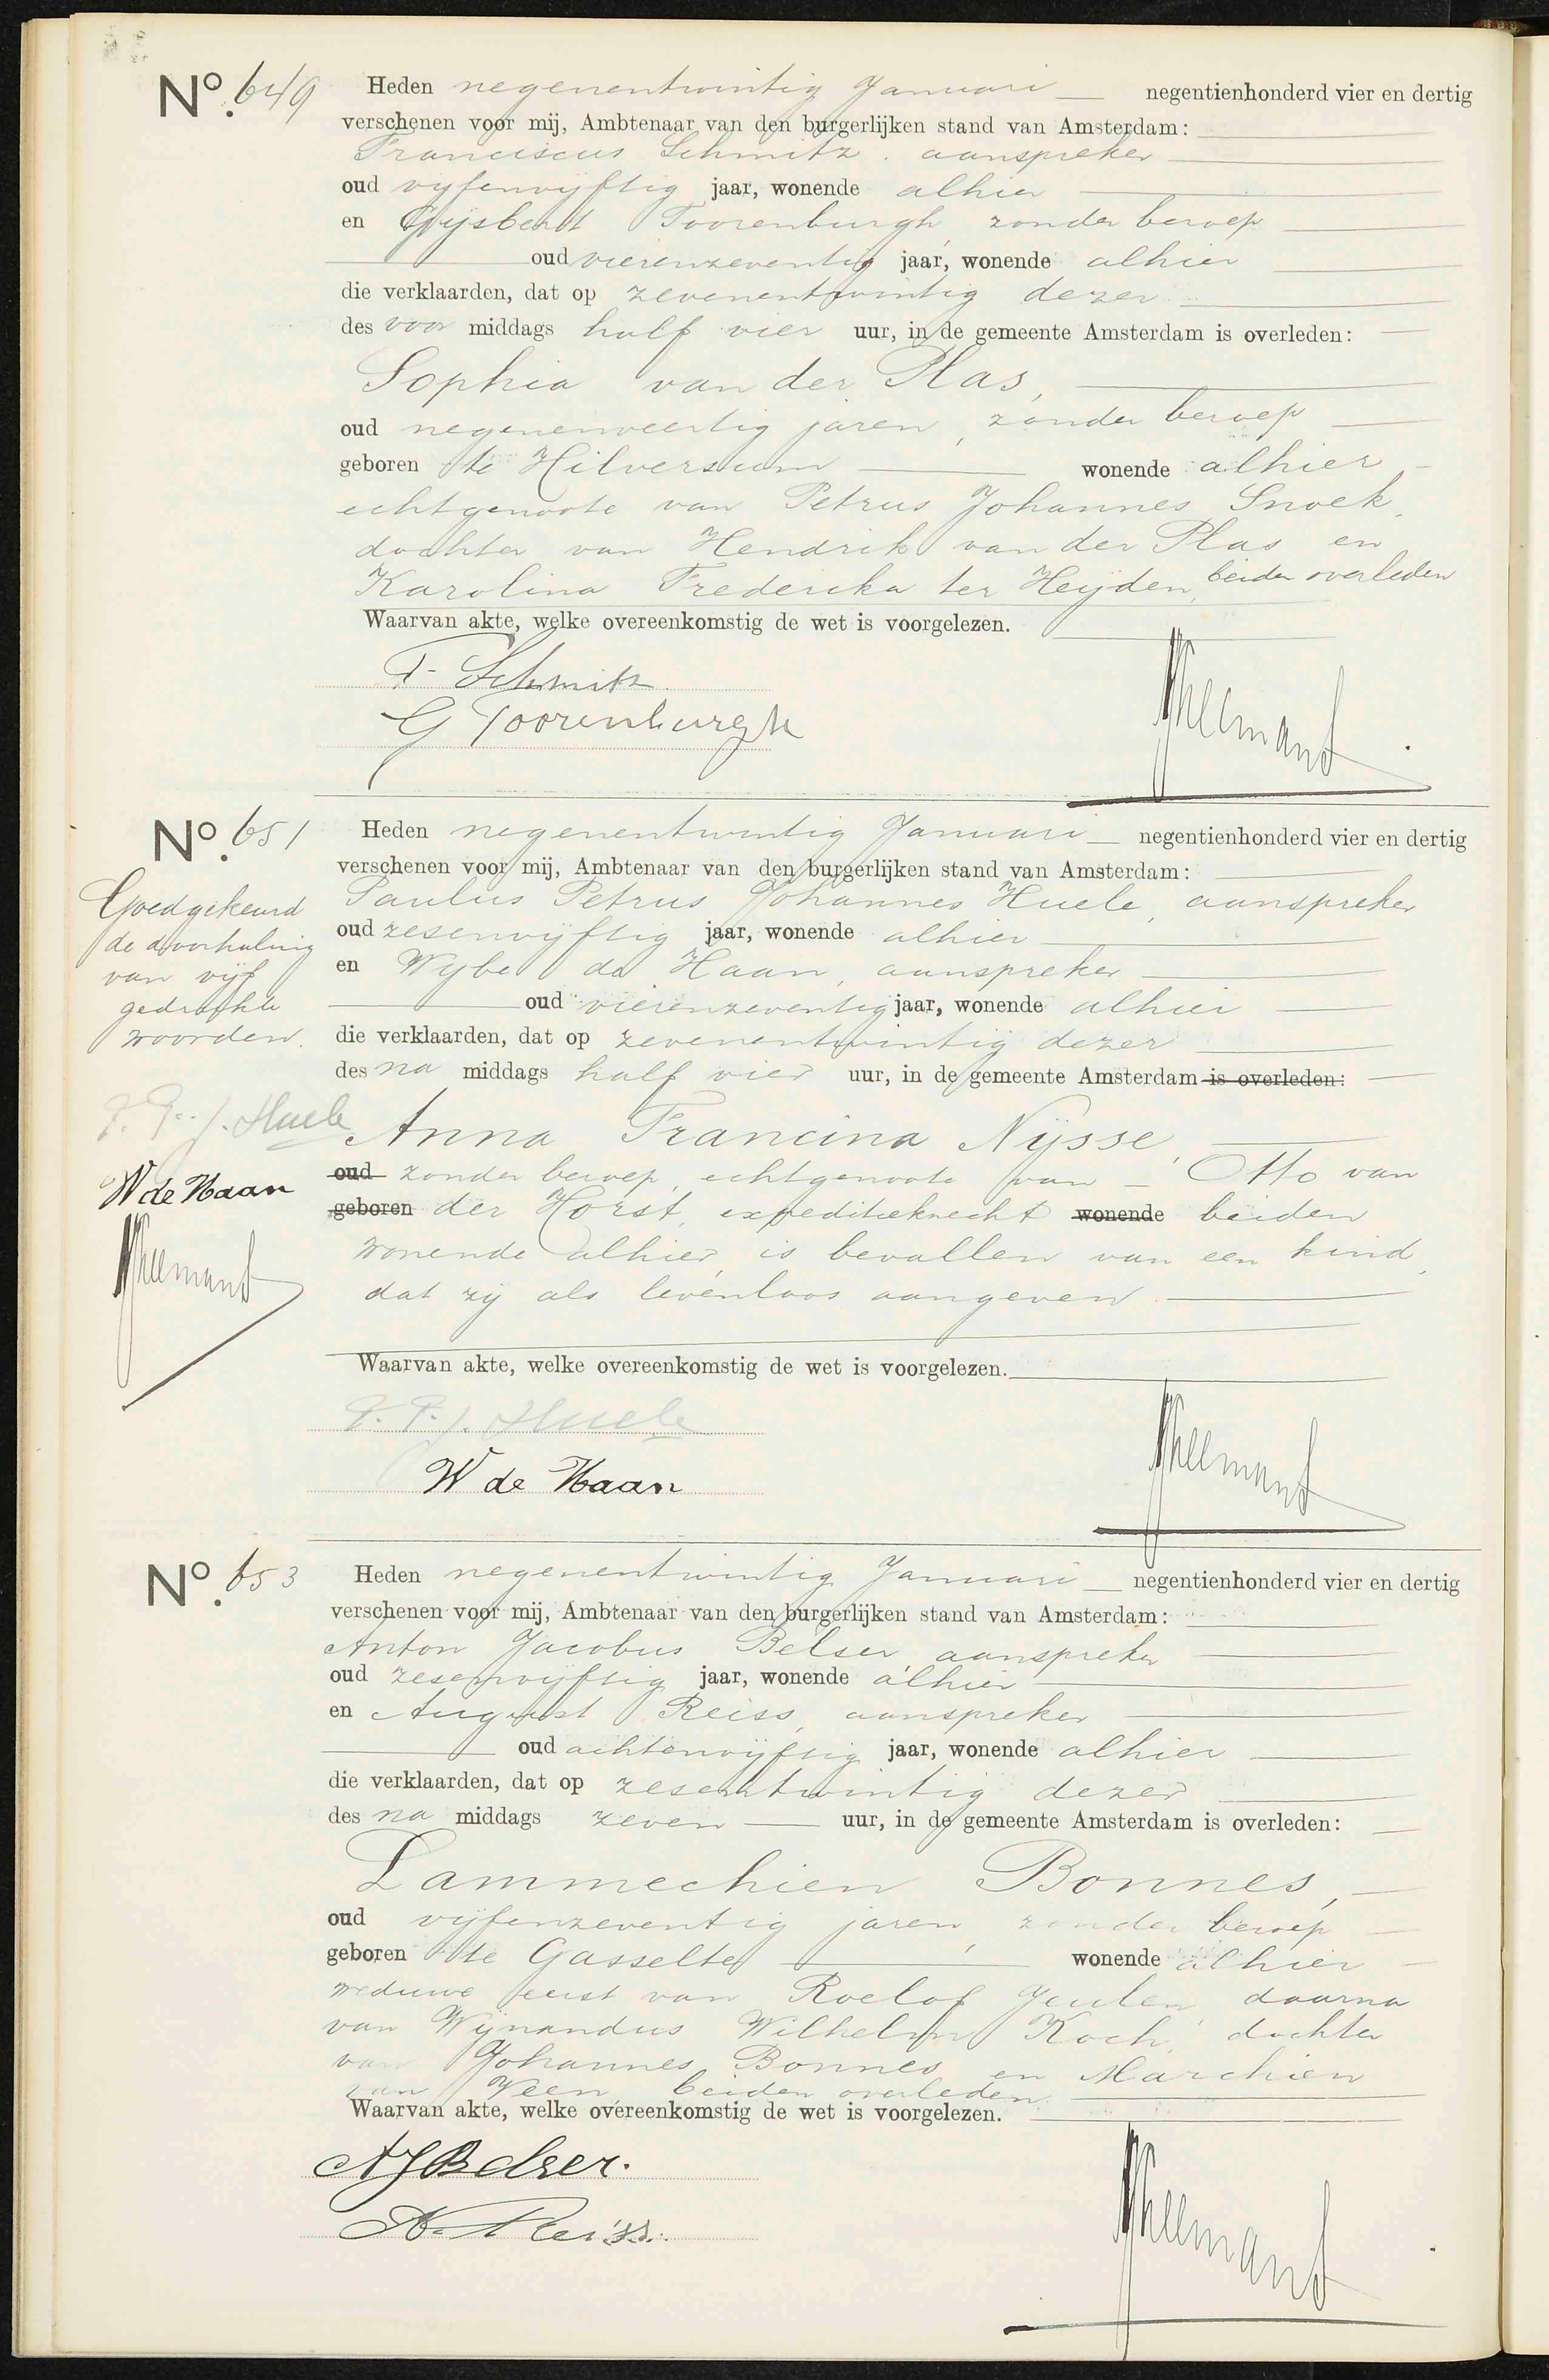 No. 649
Heden negenentwintig Januari negentienhonderd vier en dertig
verschenen voor mij, Ambtenaar van den burgerlijken stand van Amsterdam:
Franciscus Schmitz, aanspreker
oud vijfenvijftig jaar, wonende alhier
en Gijsbert Toorenburgh, zonder beroep
oud vierenzeventig jaar, wonende alhier
die verklaarden, dat op zevenentwintig dezer
des voor middags half vier uur, in de gemeente Amsterdam is overleden:
Sophia van der Plas,
oud negenenveertig jaren, zonder beroep
geboren te Hilversum wonende alhier
echtgenoote van Petrus Johannes Snoek,
dochter van Hendrik van der Plas en
Karolina Frederika ter Heijden, beiden overleden
Waarvan akte, welke overeenkomstig de wet is voorgelezen.
F. Schmitz
G Toorenburgh
No. 651
Heden negenentwintig Januari negentienhonderd vier en dertig
verschenen voor mij, Ambtenaar van den burgerlijken stand van Amsterdam:
Paulus Petrus Johannes Huele, aanspreker
oud zesenvijftig jaar, wonende alhier
en Wybe de Haan, aanspreker
oud vierenzeventig jaar, wonende alhier
die verklaarden, dat op zevenentwintig dezer
des na middags half vier uur, in de gemeente Amsterdam is overleden:
Anna Francina Nijsse,
oud zonder beroep, echtgenoote van Otto van
geboren der Horst, expeditieknecht wonende beiden
wonende alhier, is bevallen van een kind,
dat zij als levenloos aangeven
Waarvan akte, welke overeenkomstig de wet is voorgelezen.
P. P. J. Huele
W de Haan
Goedgekeurd
de doorhaling
van vijf
gedrukte
woorden.
P. P. J. Huele
W de Haan
No. 653
Heden negenentwintig Januari negentienhonderd vier en dertig
verschenen voor mij, Ambtenaar van den burgerlijken stand van Amsterdam:
Anton Jacobus Belser, aanspreker
oud zesenvijftig jaar, wonende alhier
en August Reiss, aanspreker
oud achtenvijftig jaar, wonende alhier
die verklaarden, dat op zesentwintig dezer
des na middags zeven uur, in de gemeente Amsterdam is overleden:
Lammechien Bonnes,
oud vijfenzeventig jaren, zonder beroep
geboren te Gasselte wonende alhier
weduwe eerst van Roelof Jeulen daarna
van Wijnandus Wilhelm Koch, dochter
van Johannes Bonnes en Marchien
van Veen, beiden overleden
Waarvan akte, welke overeenkomstig de wet is voorgelezen.
AJ Belser.
A. Reiss.